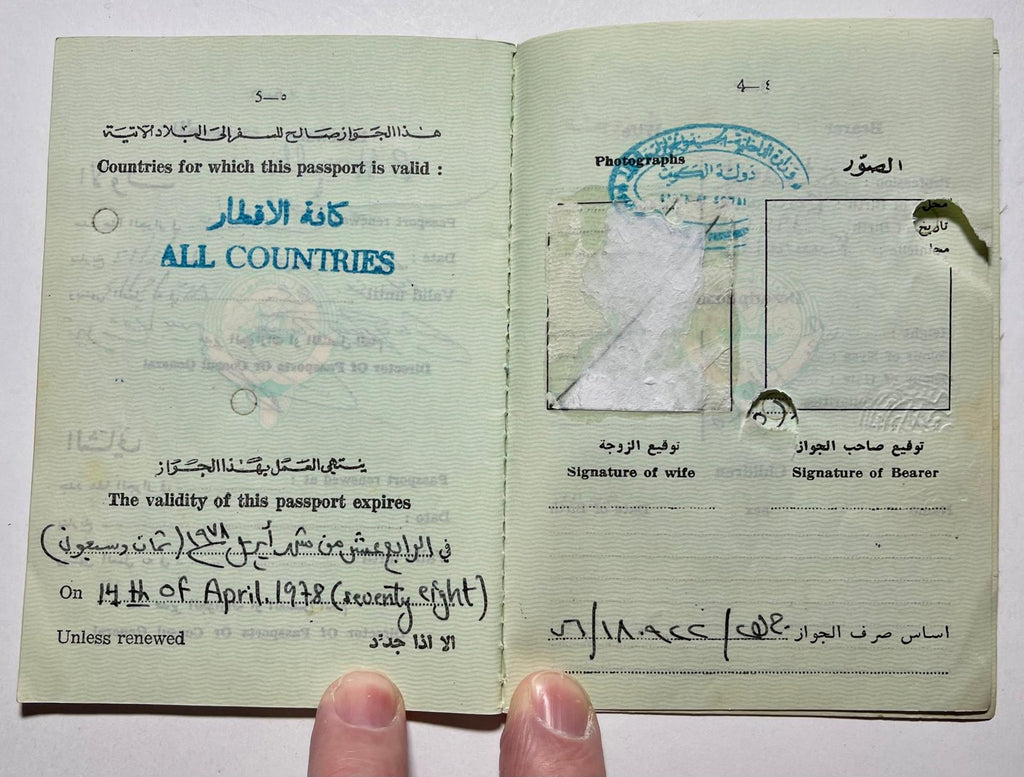 5—٥
هذا الجواز صالح للسفر إلى البلاد الآتية
Countries for which this passport is valid :
كافة الاقطار
ALL COUNTRIES
ينتهى العمل بهذا الجواز
The validity of this passport expires
في الرابع عشر من شهر أبريل ١٩٧٨ (ثمان وسبعون)
On 14th of April.1978 (seventy eight)
Unless renewed
الا اذا جدد
4—٤
Photographs
الصوّر
دولة الكويت
محل
تاريخ
توقيع الزوجة
توقيع صاحب الجواز
Signature of wife
Signature of Bearer
اساس صرف الجواز